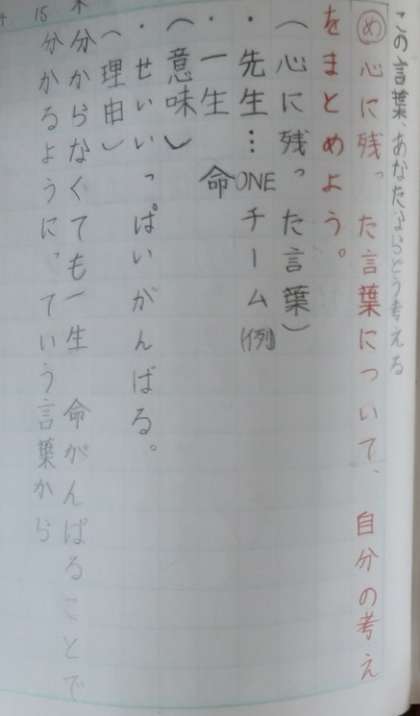 この言葉、あなたならどう考える
め 心に残った言葉について、自分の考え
をまとめよう。
(心に残った言葉)
・先生…ONEチーム(例)
・一生命
(意味)
・せいいっぱいがんばる。
(理由)
分からなくても一生命がんばることで
分かるように、ていう言葉から
15